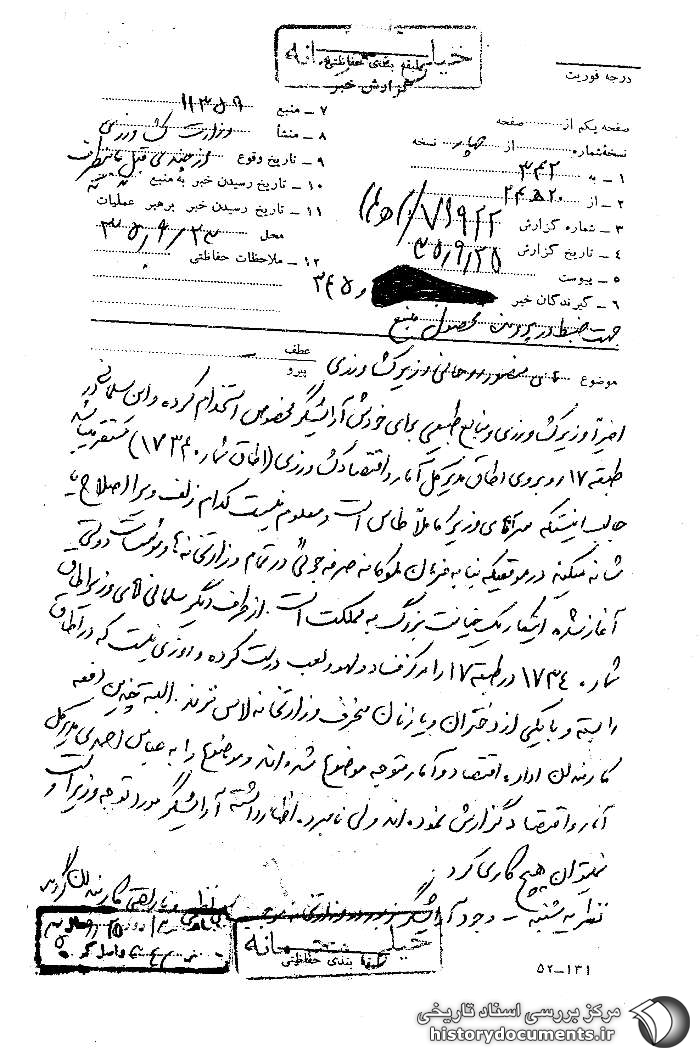 خیلی محرمانه
طبقه بندی حفاظتی
گزارش خبر
درجه فوریت
صفحه یکم از صفحه
نسخه شماره از چهار نسخه
۱ – به ۳۴۲
۲ – از ۲۴ ه‍ ۲۰
۳ – شماره گزارش
۴ – تاریخ گزارش ۳۵/۹/۲۵
۵ – پیوست
۶ – گیرندگان خبر و ۳۴۵
جهت ضبط در پرونده محصول منبع
۷ – منبع ۱۱۳۵۹
۸ – منشأ وزارت کشاورزی
۹ – تاریخ وقوع از چندی قبل
۱۰ – تاریخ رسیدن خبر به منبع
۱۱ – تاریخ رسیدن خبر برهبر عملیات
محل ۳۵/۹/۲۳
۱۲ – ملاحظات حفاظتی
موضوع منصور روحانی وزیر کشاورزی
عطف
پیرو
اخیراً وزیر کشاورزی و منابع طبیعی برای خودش آرایشگر مخصوص استخدام کرده و این سلمانی در
طبقه ۱۷ روبروی اطاق مدیر کل آمار و اقتصاد کشاورزی (اطاق شماره ۱۷۳۴۰) مستقر میباشد
جالب اینستکه سر آقای وزیر کاملاً طاس است و معلوم نیست کدام زلف ویرا اصلاح یا
شانه میکند در موقعیکه بنا به فرمان ملوکانه صرفه جوئی در تمام وزارتخانه‌ها و موسسات دولتی
آغاز شده اینکار یک خیانت بزرگ به مملکت است. از طرف دیگر سلمانی آقای وزیر اطاق
شماره ۱۷۳۴۰ در طبقه ۱۷ را مرکز فساد و لهو و لعب درست کرده و روزی نیست که در اطاق
را بسته و با یکی از دختران و یا زنان منحرف وزارتخانه لاس نزند. البته چندین دفعه
کارمندان اداره اقتصاد و آمار متوجه موضوع شده‌اند و موضوع را به عباس احمدی مدیر کل
آمار و اقتصاد گزارش نموده‌اند ولی نامبرده اظهار داشته آرایشگر مورد توجه وزیر است و
نمیتوان هیچ کاری کرد.
نظریه شنبه – وجود آرایشگر مزبور در وزارتخانه موجب نارضایتی کارمندان گردیده
خیلی محرمانه
طبقه بندی حفاظتی
۵۲–۱۳۱
مرکز بررسی اسناد تاریخی
historydocuments.ir